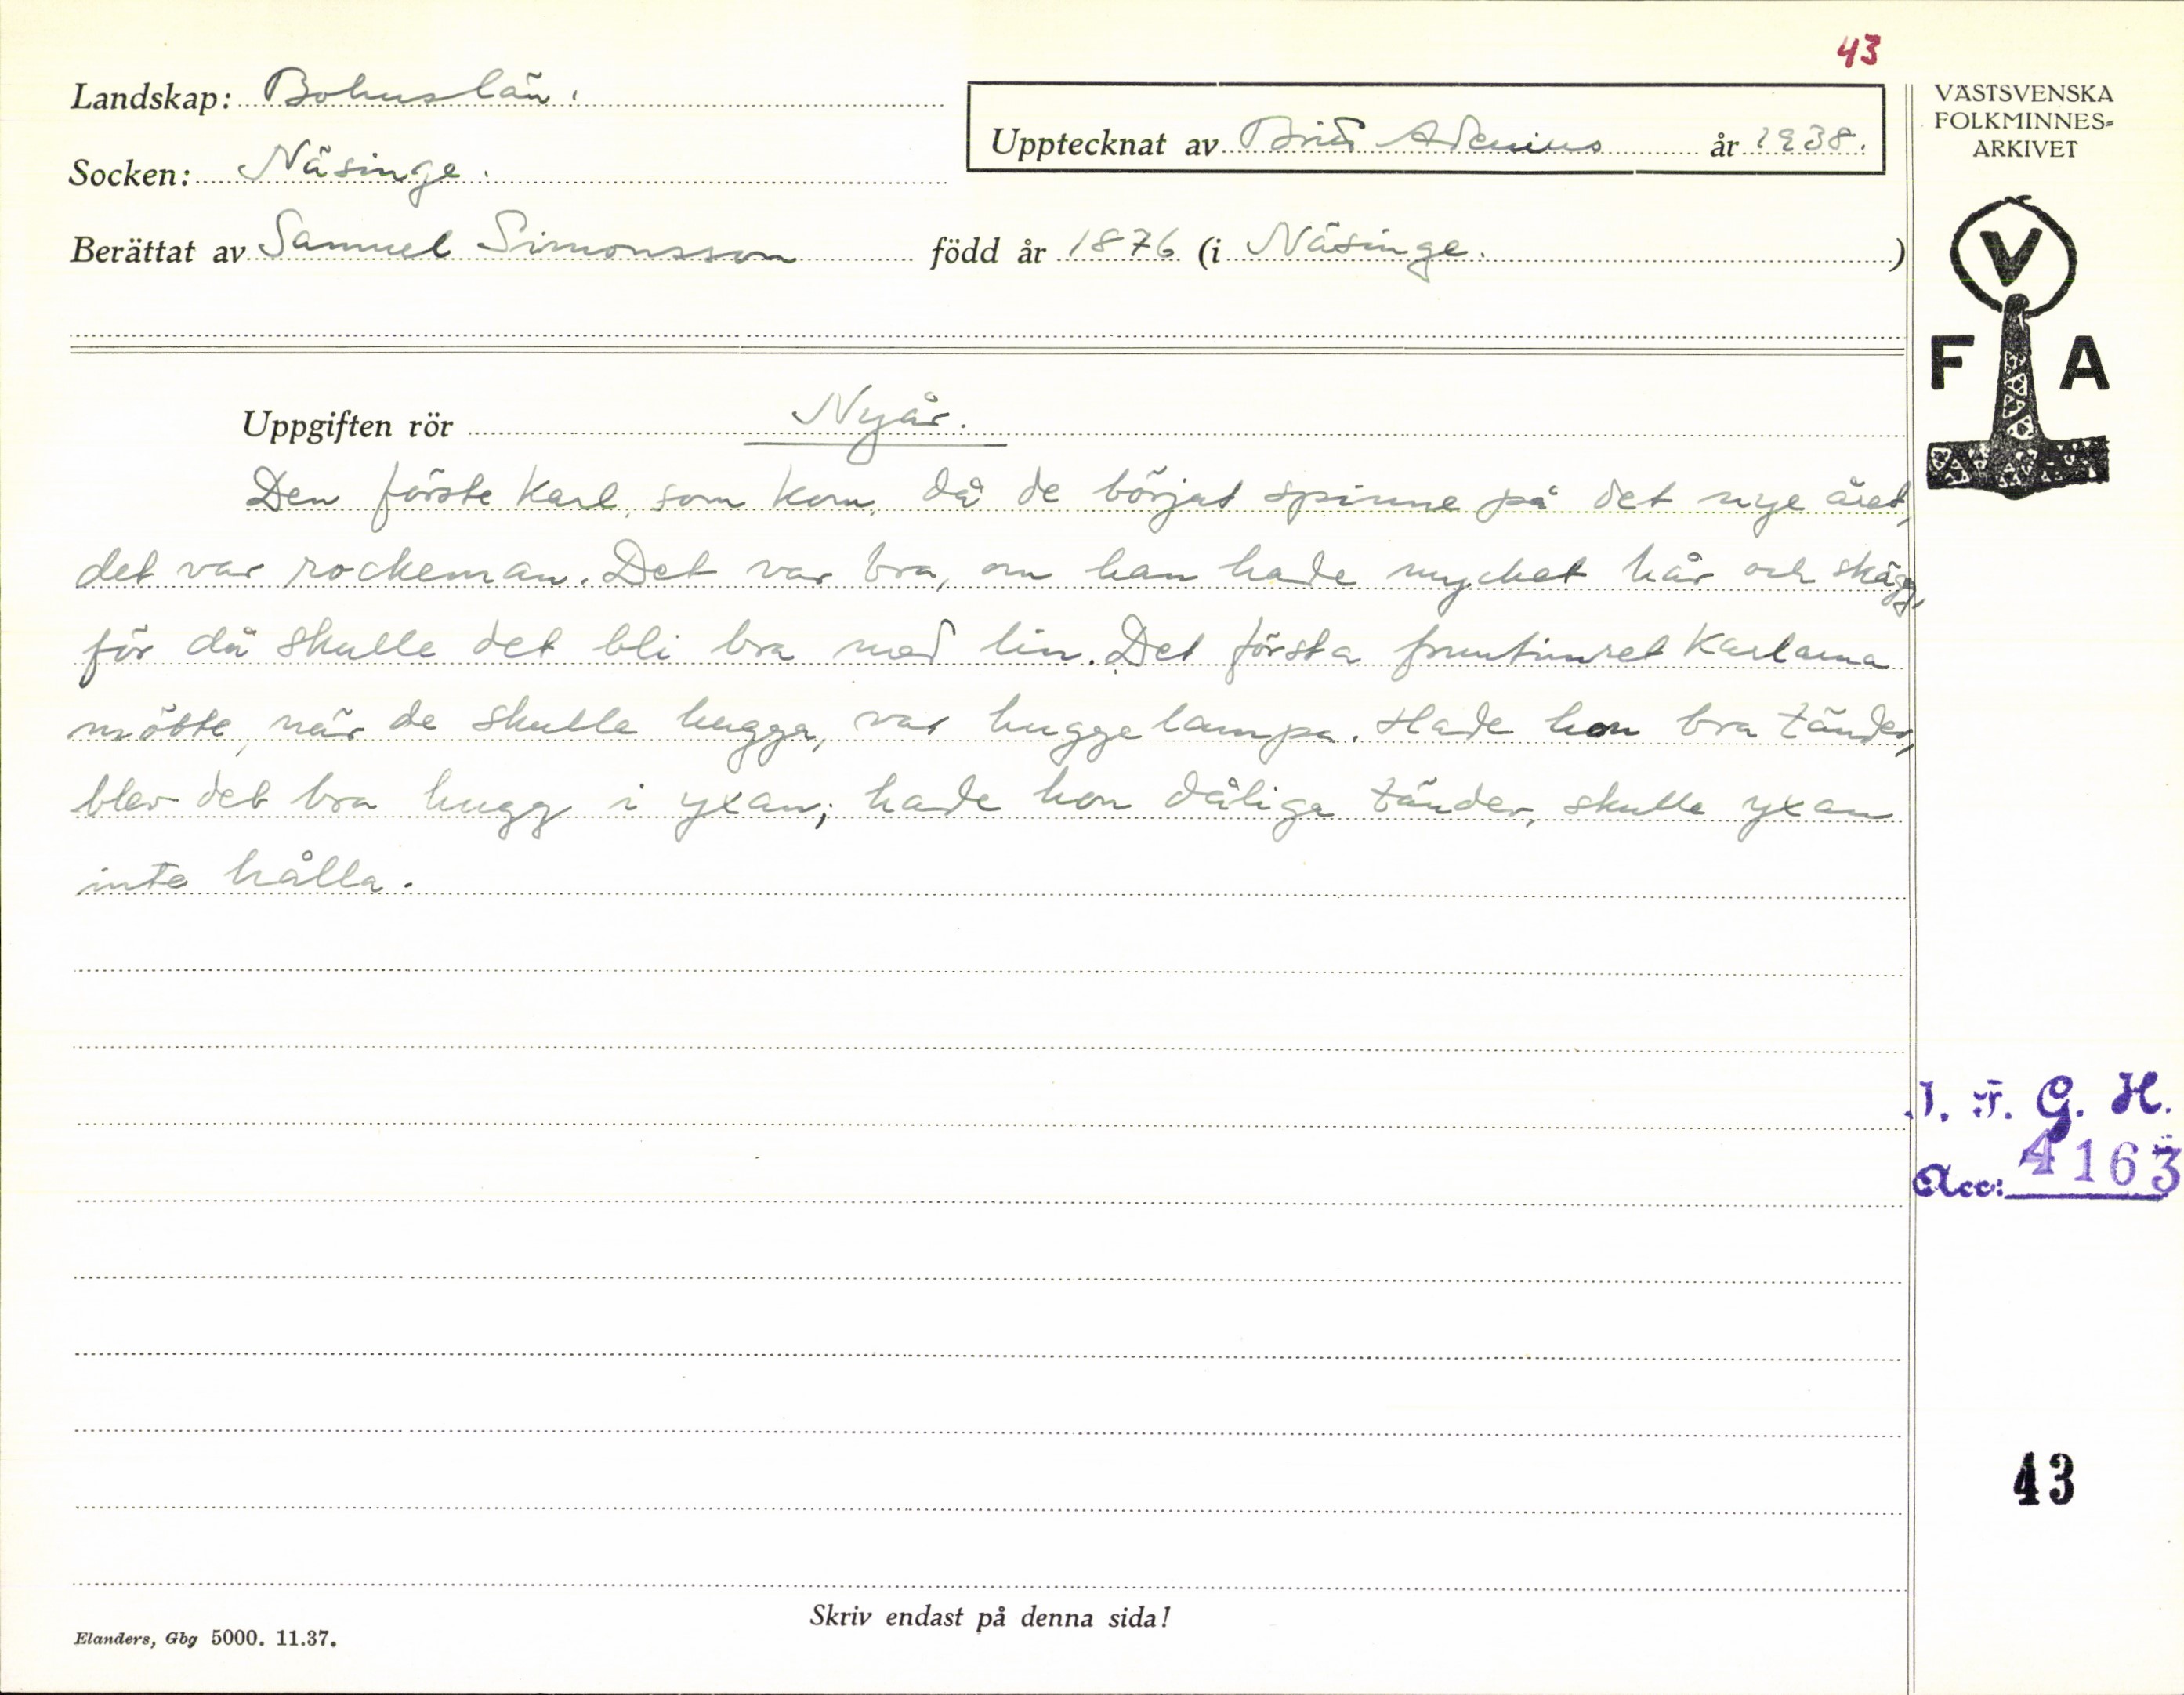 43
Landskap: Bohuslän.
Upptecknat av Brita Adenius år 1938.
Socken: Näsinge.
Berättat av Samuel Simonsson född år 1876 (i Näsinge.)
VÄSTSVENSKA
FOLKMINNES-
ARKIVET
V
F A
Uppgiften rör Nyår.
Den förste karl, som kom, då de börjat spinne på det nye året,
det var rockeman. Det var bra, om han hade mycket hår och skägg,
för då skulle det bli bra med lin. Det första fruntimret karlarna
mötte, när de skulle hugga, var huggelampa. Hade hon bra tänder,
blev det bra hugg i yxan; hade hon dåliga tänder, skulle yxan
inte hålla.
I. F. G. H.
Acc: 4163
43
Skriv endast på denna sida!
Elanders, Gbg 5000. 11.37.